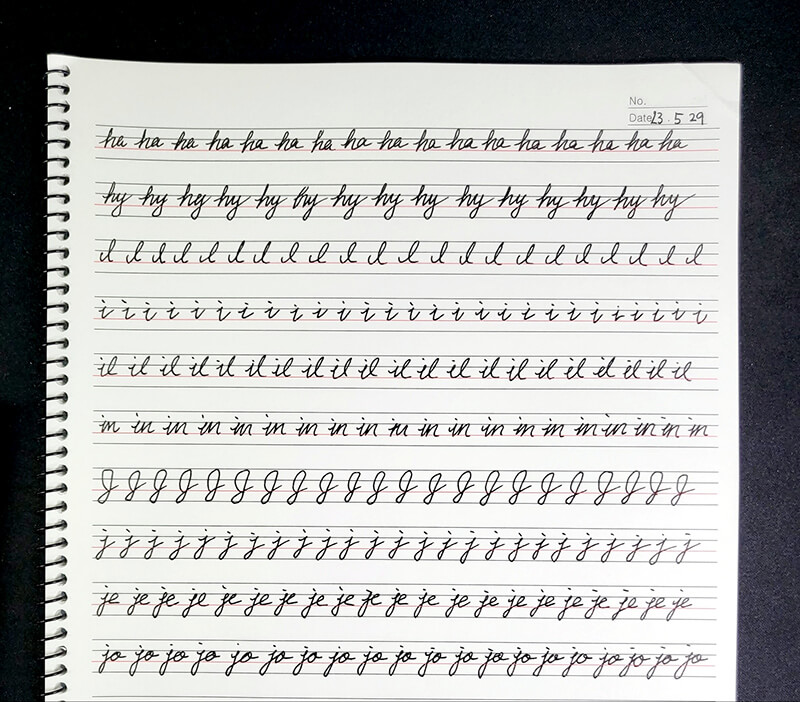 No.
Date 23.5 29
ha ha ha ha ha ha ha ha ha ha ha ha ha ha ha ha ha
hy hy hy hy hy hy hy hy hy hy hy hy hy hy hy
I I I I I I I I I I I I I I I I I I I I I I
i i i i i i i i i i i i i i i i i i i i i i i i i i i
il il il il il il il il il il il il il il il il il il il il il
in in in in in in in in in in in in in in in in in in in in
J J J J J J J J J J J J J J J J J J J J J J
j j j j j j j j j j j j j j j j j j j j j j j j j
je je je je je je je je je je je je je je je je je je je je je
jo jo jo jo jo jo jo jo jo jo jo jo jo jo jo jo jo jo jo jo